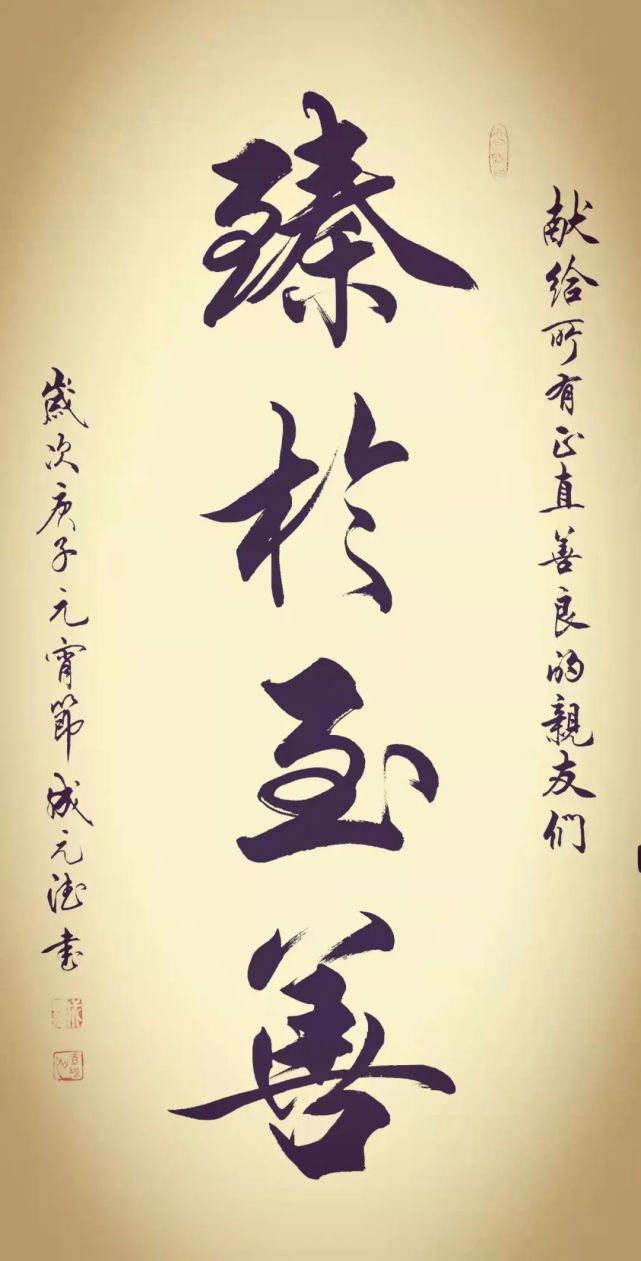 献给所有正直善良的親友们
臻於至善
歲次庚子元宵節成元德書